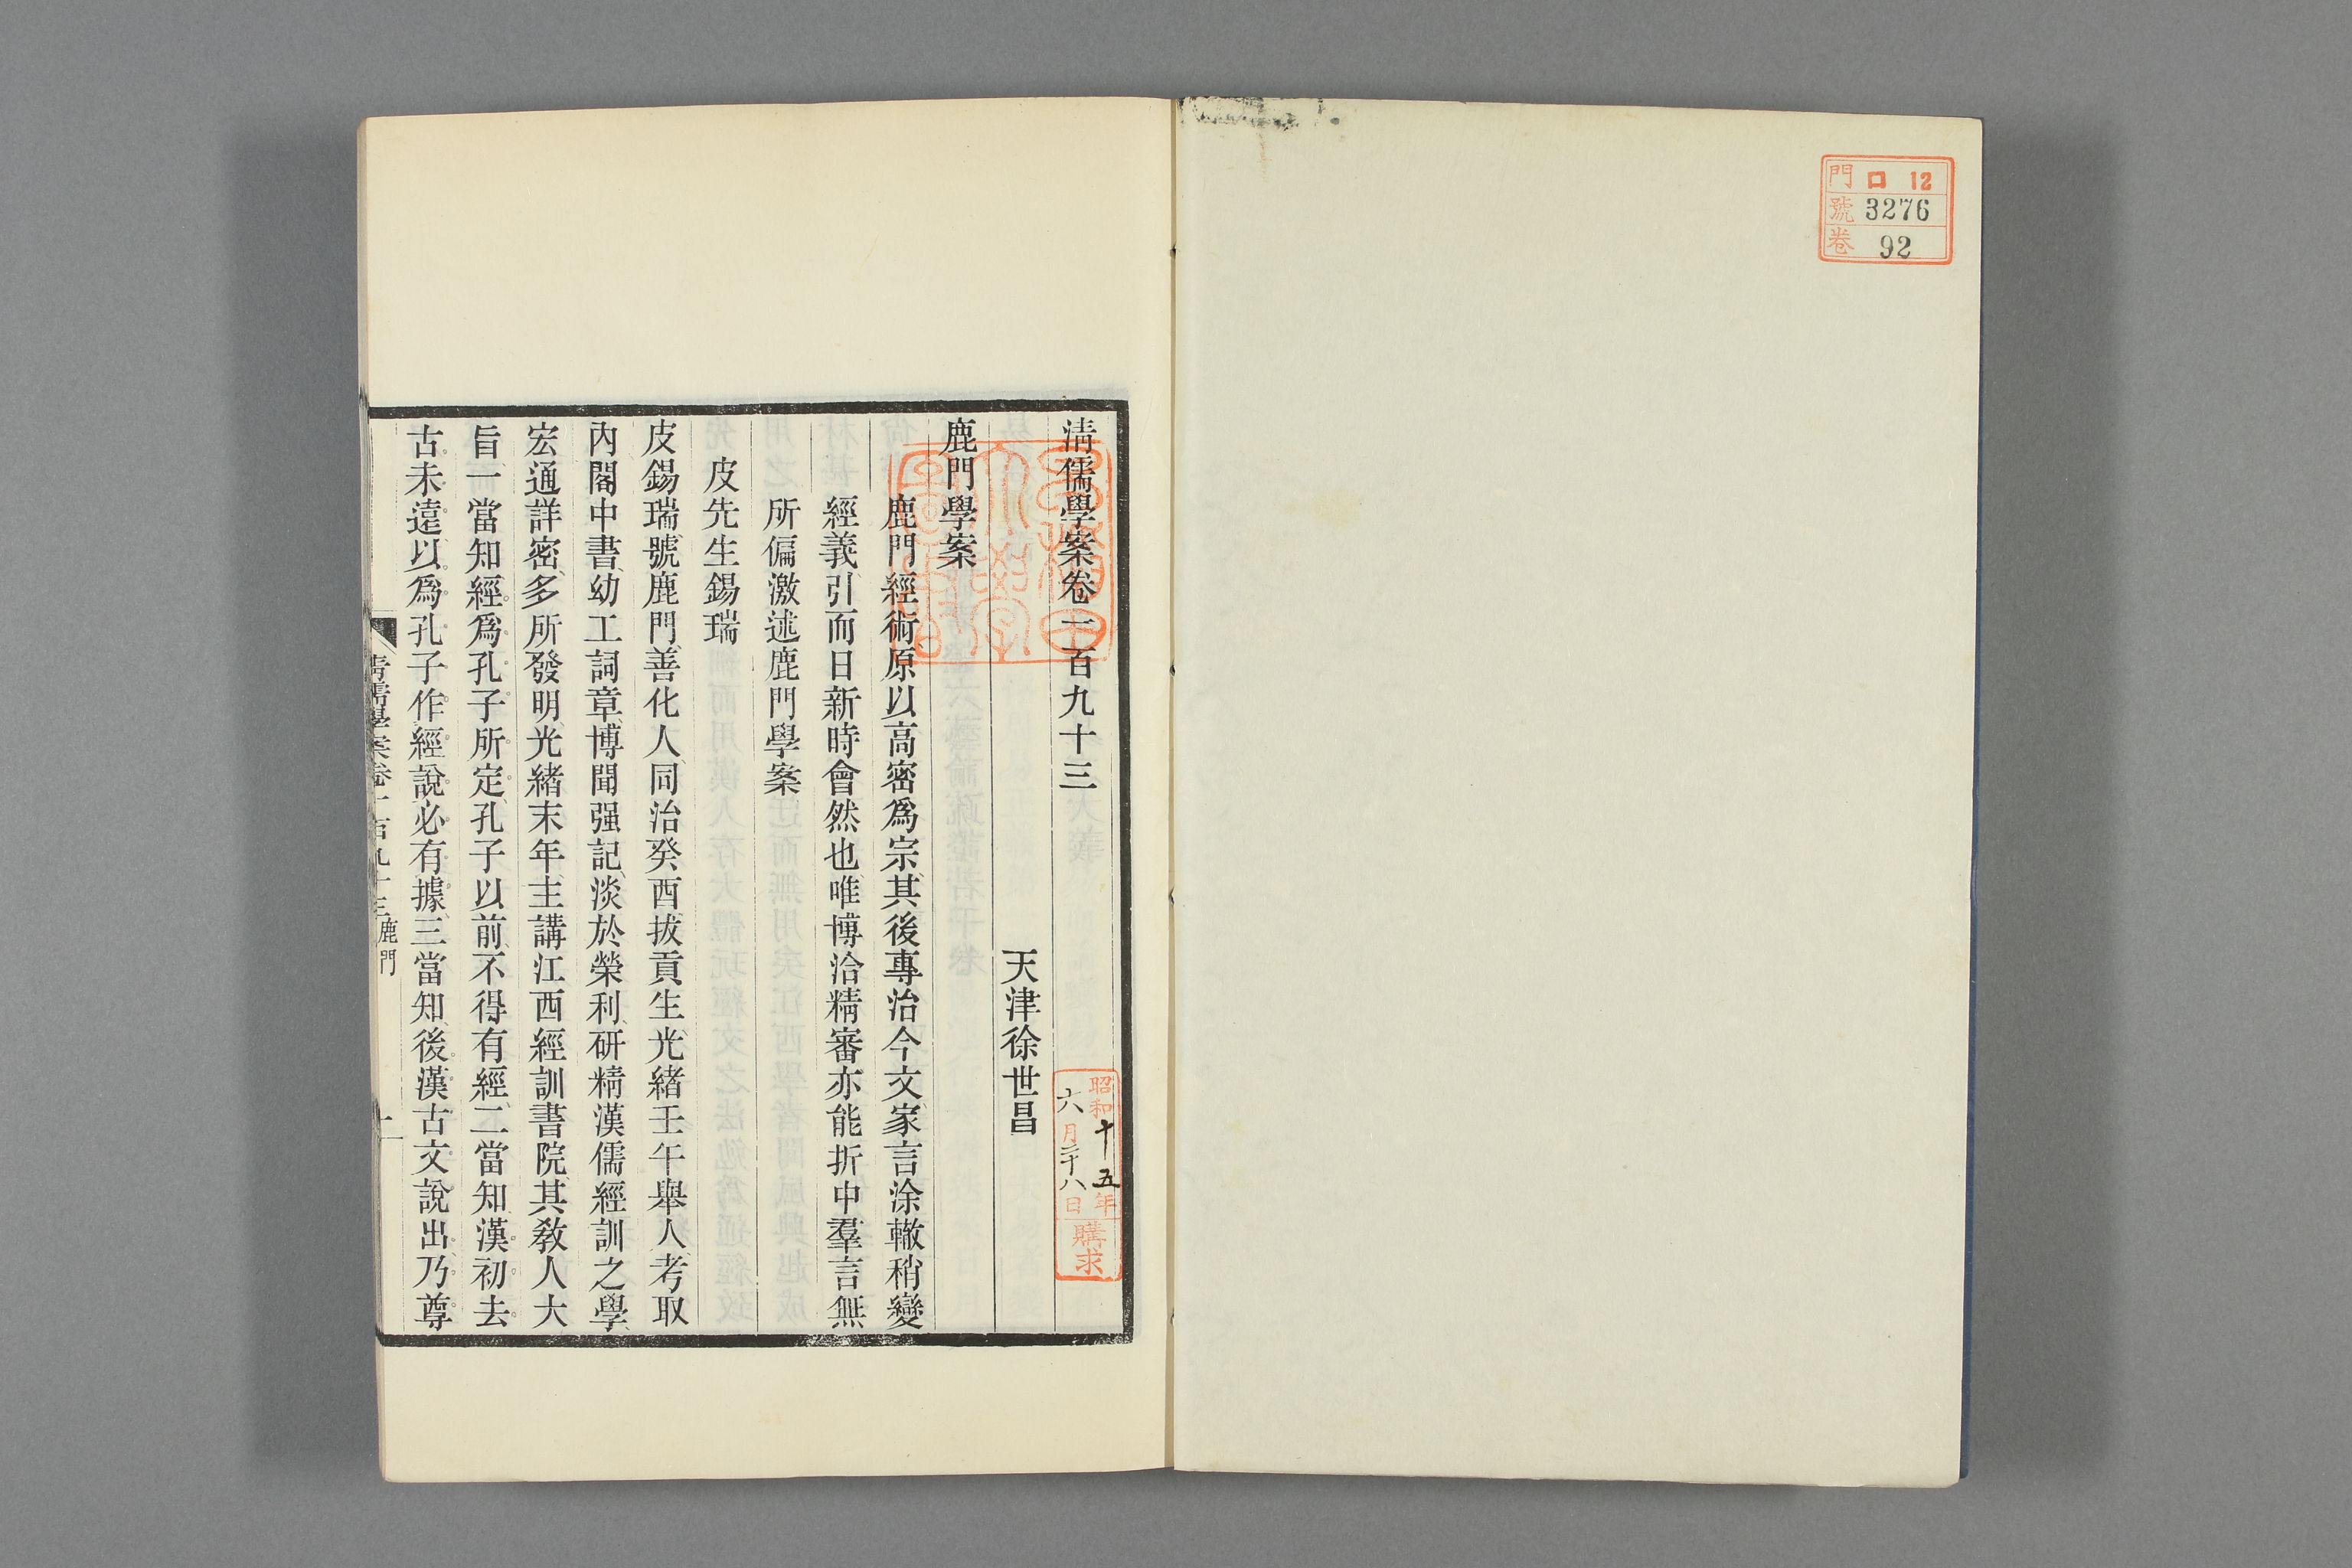 門 ロ 12
號 3276
卷 92
清儒學案卷一百九十三
天津徐世昌
鹿門學案
鹿門經術、原以高密爲宗、其後專治今文家言、涂轍稍變、
經義引而日新、時會然也、唯博洽精審、亦能折中羣言、無
所偏激、述鹿門學案
皮先生錫瑞
皮錫瑞、號鹿門、善化人、同治癸酉拔貢生、光緒壬午舉人、考取
內閣中書、幼工詞章、博聞强記、淡於榮利、研精漢儒經訓之學、
宏通詳密、多所發明、光緒末年、主講江西經訓書院、其敎人大
旨、一當知經爲孔子所定、孔子以前、不得有經、二當知漢初去
古未遠、以爲孔子作經、說必有據、三當知後漢古文說出、乃尊
清儒學案卷一百九十三 鹿門 一
昭和十五年
六月二十八日
購求